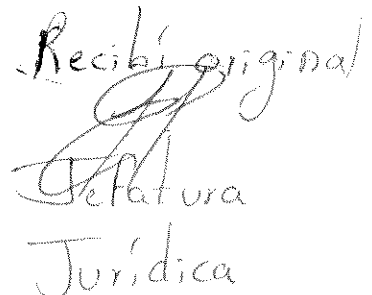 Recibí original
Jefatura
Jurídica